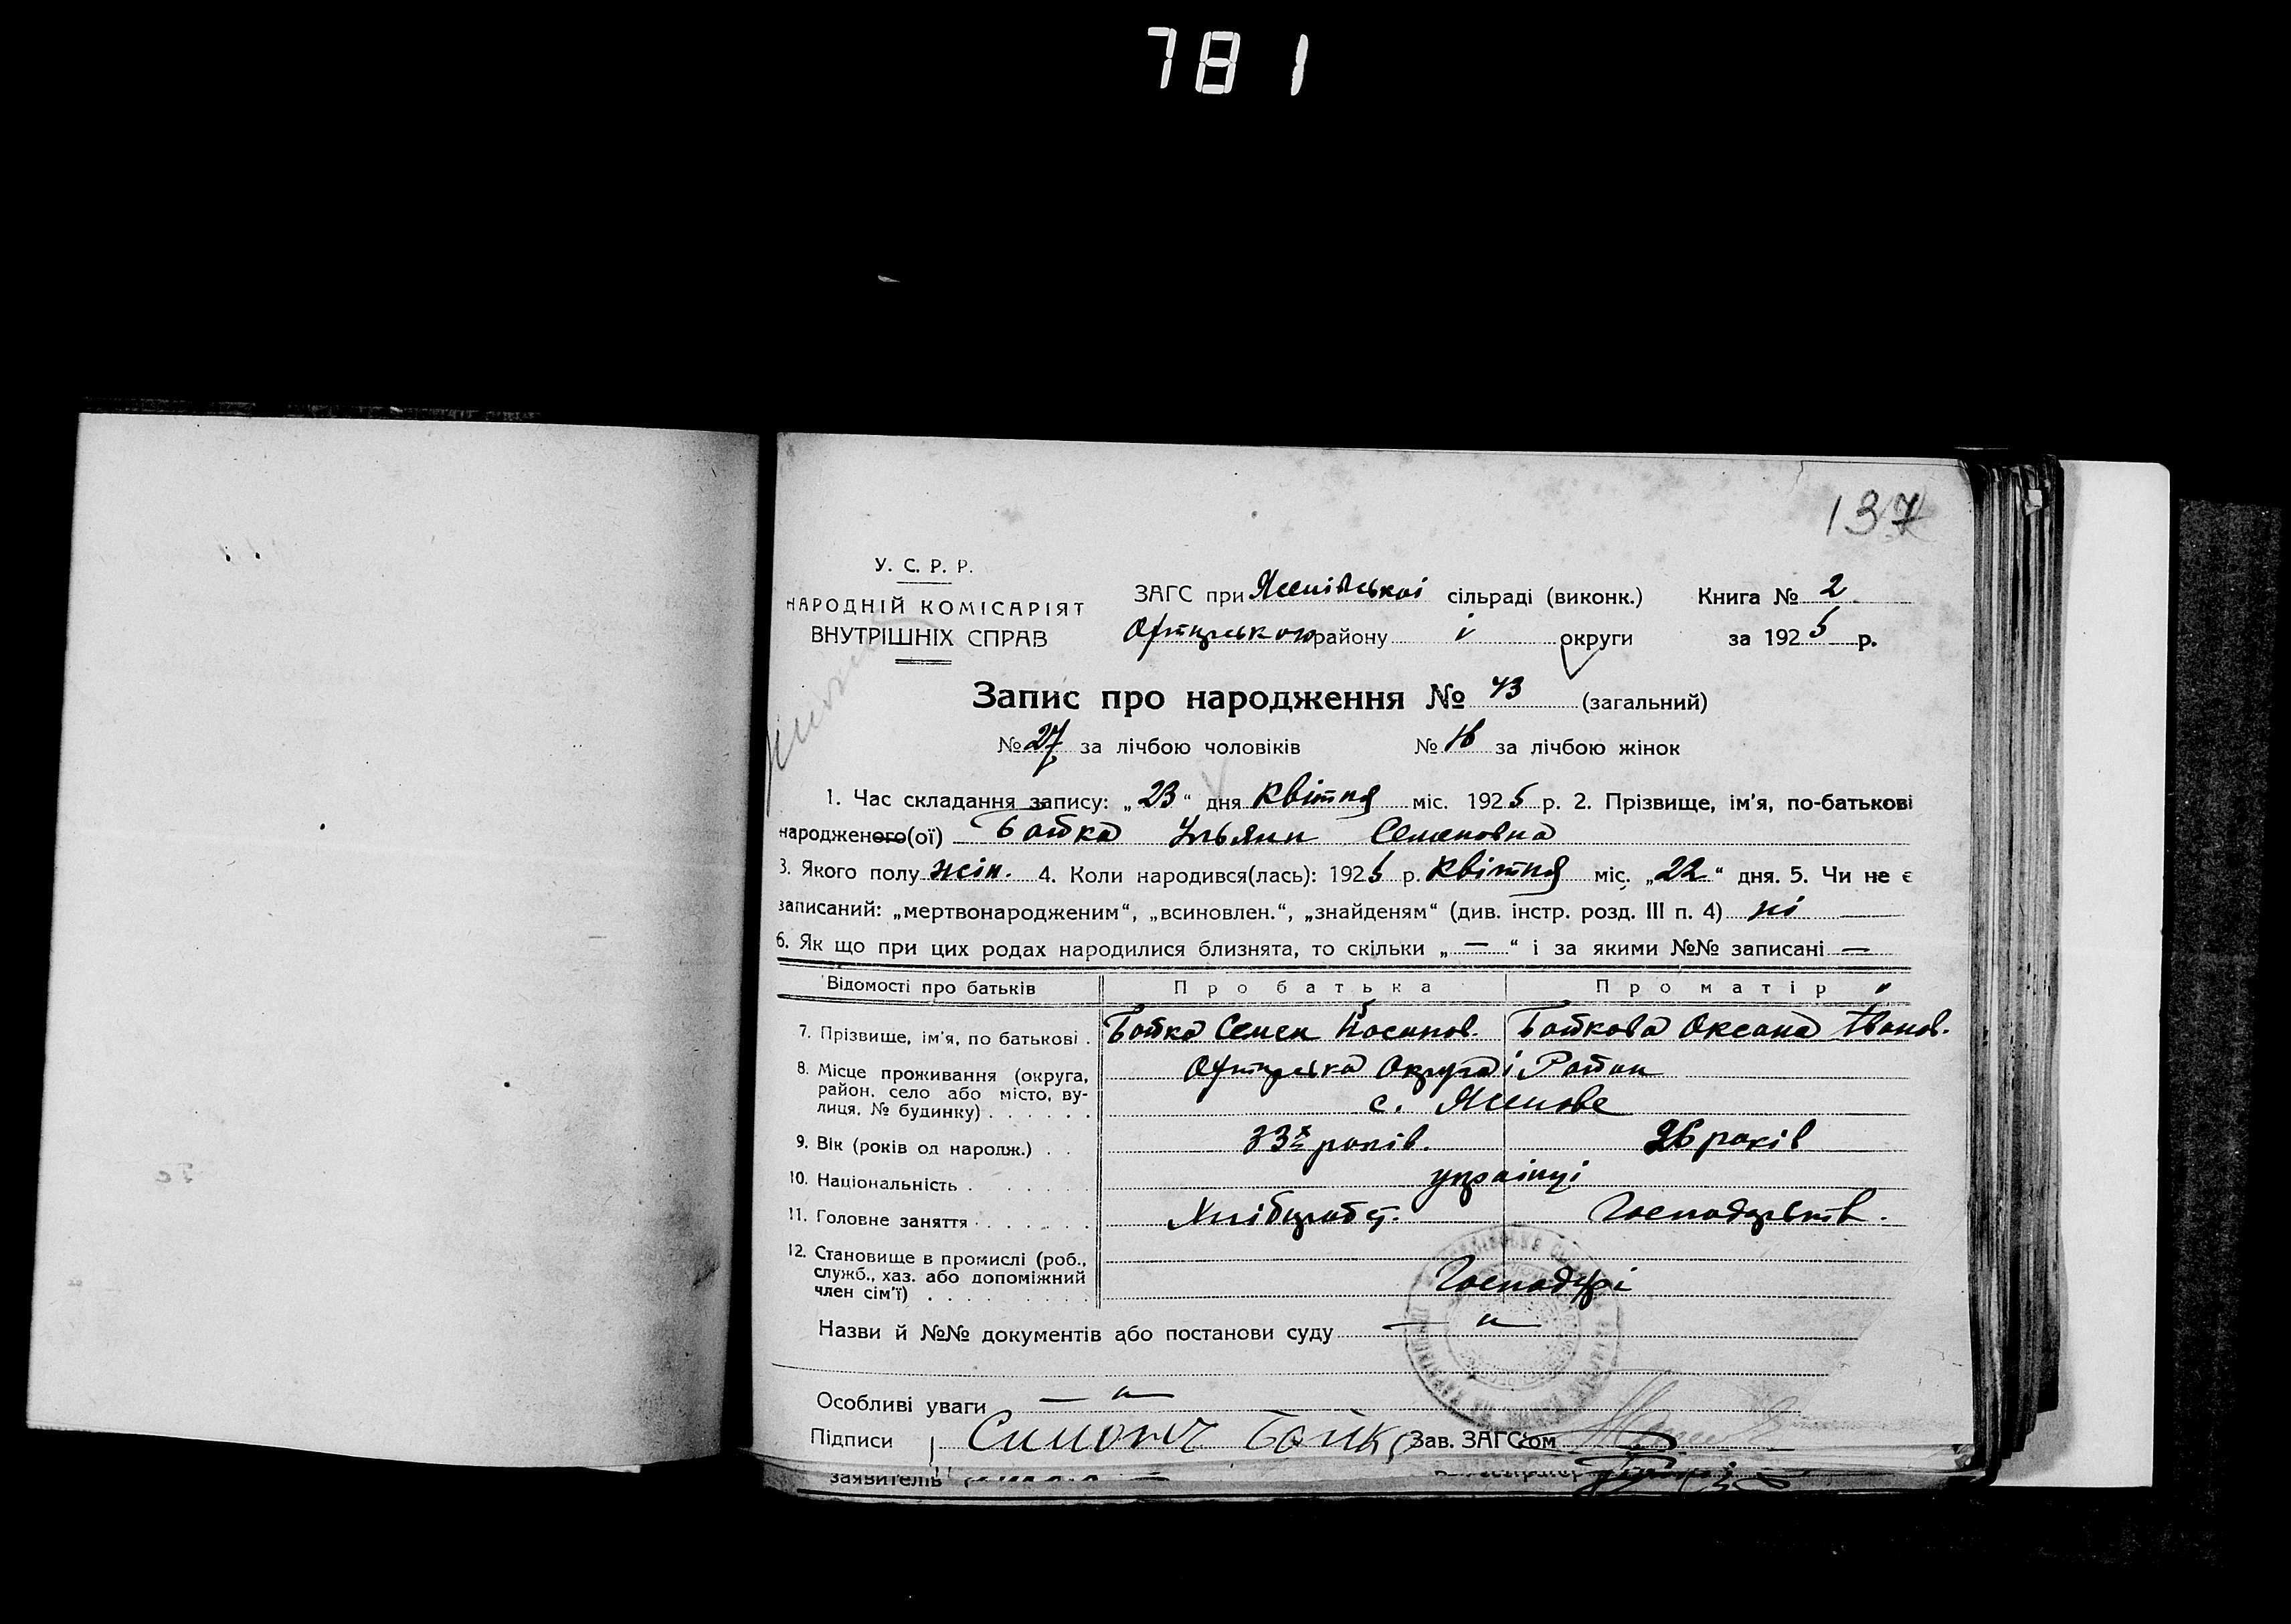 781
137
У. С. Р. Р.
НАРОДНІЙ КОМІСАРІЯТ
ВНУТРІШНІХ СПРАВ
ЗАГС при Ясенівської сільраді (виконк.) Книга № 2
району і округи за 1925 р.
Запис про народження № 43 (загальний)
№ 27 за лічбою чоловіків № 16 за лічбою жінок
1. Час складання запису: „23“ дня Квітня міс. 1925 р. 2. Прізвище, ім'я, по-батькові
народженого(ої) Бойко Ульяни Семеновна
3. Якого полу жін. 4. Коли народився(лась): 1925 р. Квітня міс. „22“ дня. 5. Чи не є
записаний: „мертвонародженим“, „всиновлен.“, „знайденям“ (див. інстр. розд. III п. 4) ні
6. Як що при цих родах народилися близнята, то скільки „—“ і за якими №№ записані —
Відомості про батьків Про батька Про матір
7. Прізвище, ім'я, по батькові . Бойко Семен Йосипов. Бойкова Оксана Іванов.
8. Місце проживання (округа, район, село або місто, вулиця, № будинку) . . . . . . Округа і Район
с. Ясенове
9. Вік (років од народж.) . . 33х років. 26 років
10. Національність . . . . . . українці
11. Головне заняття . . . . . . Хлібороб Господарств.
12. Становище в промислі (роб.,
служб., хаз. або допоміжний
член сім'ї) . . . . . . . . . Господарі
Назви й №№ документів або постанови суду — " —
Особливі уваги — " —
Підписи Бойко Зав. ЗАГС'ом
заявителів